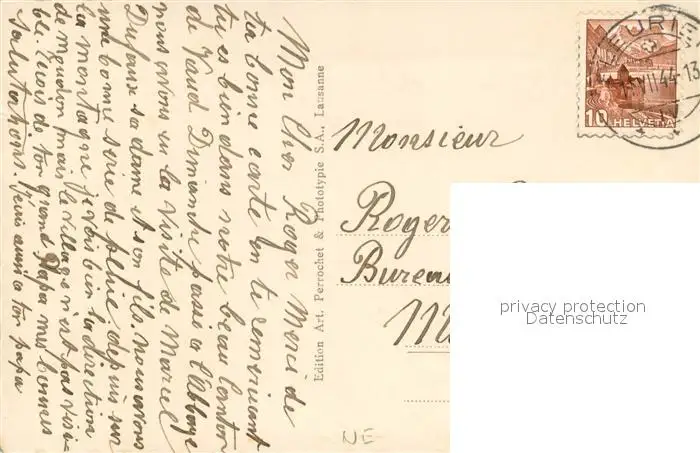 Mon cher Roger Merci de
ta bonne carte en te remerciant
tu es bien dans notre beau Canton
de Vaud Dimanche passé a l'Abbaye
nous avons eu la visite de Marcel
Dufaux sa dame et son fils. nous avons
une bonne série de pluie, depuis sur
la montagne je vois bien la direction
de meudon mais le village n'est pas visi
ble. reçois de ton grand Papa mes bonnes
salutations. J'écris aussi a ton papa
Edition Art. Perrochet & Phototypie S.A., Lausanne
Monsieur
Roger
Bureau
NE
10 HELVETIA
URI
44-13
privacy protection
Datenschutz